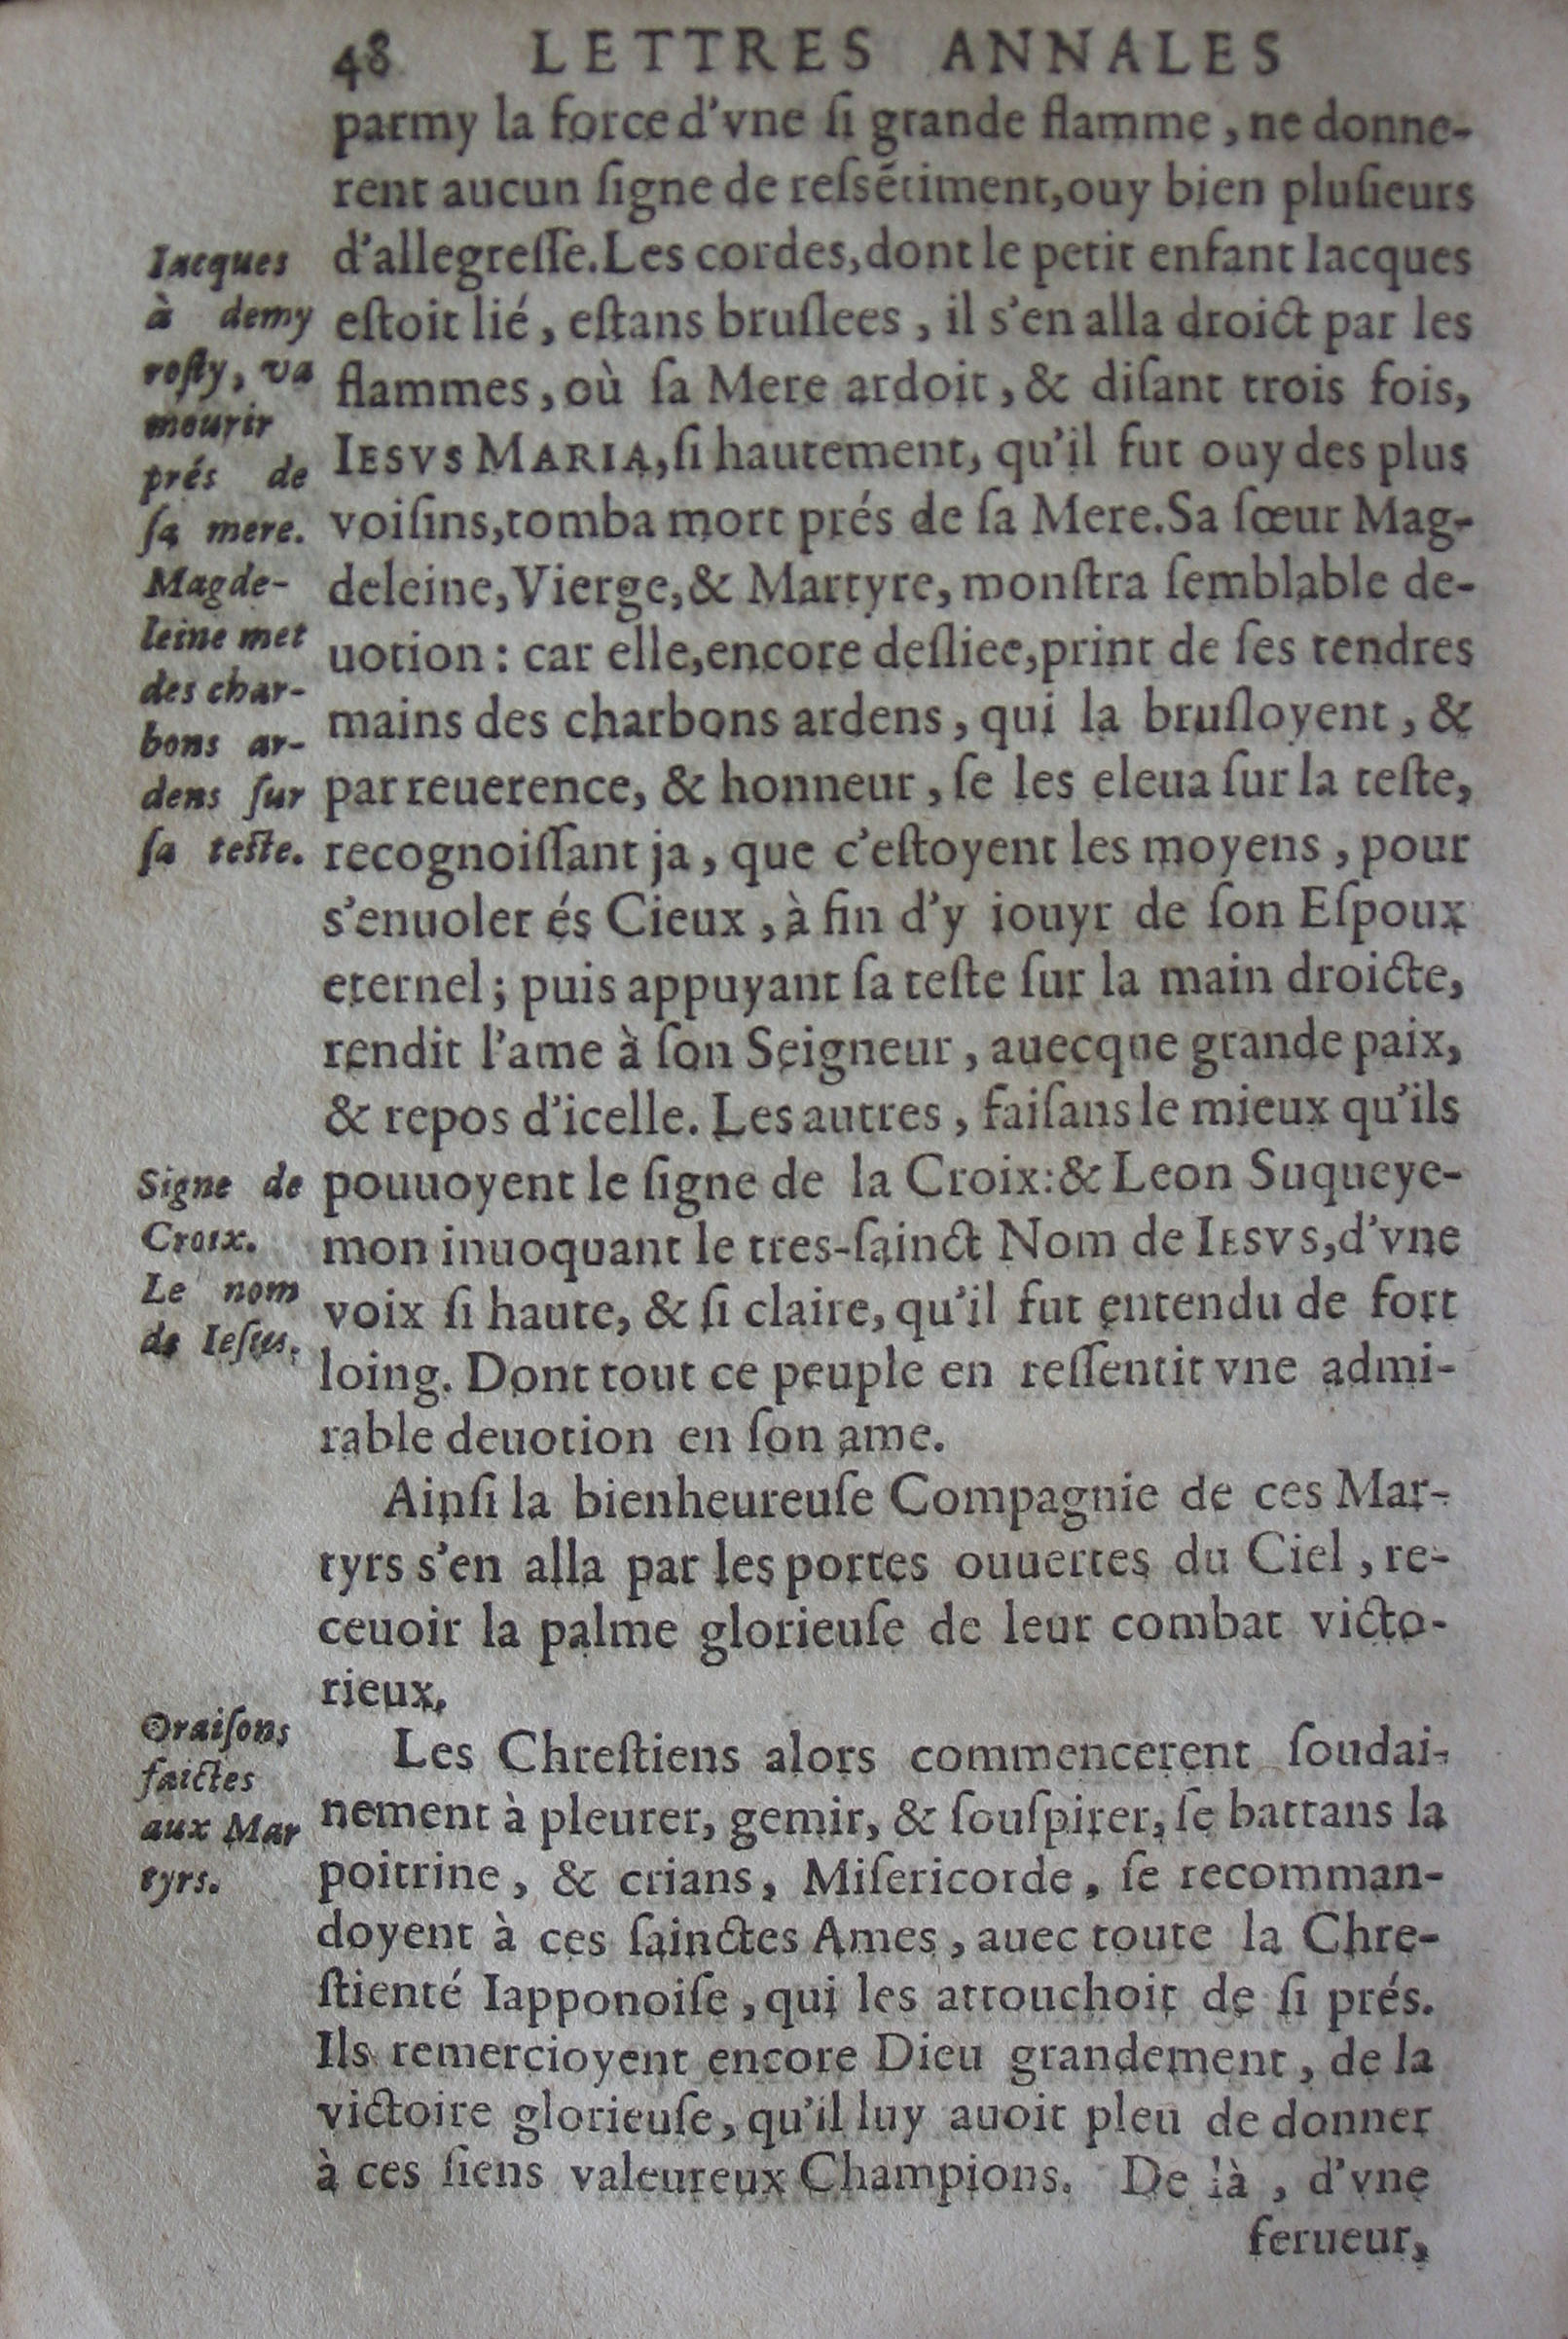 48 LETTRES ANNALES
parmy la force d'vne ſi grande flamme, ne donne-
rent aucun ſigne de reſsẽtiment, ouy bien pluſieurs
d'allegreſſe. Les cordes, dont le petit enfant Iacques
eſtoit lié, eſtans bruſlees, il s'en alla droict par les
flammes, où ſa Mere ardoit, & diſant trois fois,
IESVS MARIA, ſi hautement, qu'il fut ouy des plus
voiſins, tomba mort prés de ſa Mere. Sa ſœur Mag-
deleine, Vierge, & Martyre, monſtra ſemblable de-
uotion : car elle, encore desliee, print de ſes tendres
mains des charbons ardens, qui la bruſloyent, &
par reuerence, & honneur, ſe les eleua ſur la teſte,
recognoiſſant ja, que c'eſtoyent les moyens, pour
s'enuoler és Cieux, à fin d'y iouyr de ſon Eſpoux
eternel ; puis appuyant ſa teſte ſur la main droicte,
rendit l'ame à ſon Seigneur, auecque grande paix,
& repos d'icelle. Les autres, faiſans le mieux qu'ils
pouuoyent le ſigne de la Croix: & Leon Suqueye-
mon inuoquant le tres-ſainct Nom de IESVS, d'vne
voix ſi haute, & ſi claire, qu'il fut entendu de fort
loing. Dont tout ce peuple en reſſentit vne admi-
rable deuotion en ſon ame.
Ainſi la bienheureuſe Compagnie de ces Mar-
tyrs s'en alla par les portes ouuertes du Ciel, re-
ceuoir la palme glorieuſe de leur combat victo-
rieux.
Les Chreſtiens alors commencerent ſoudai-
nement à pleurer, gemir, & ſouſpirer, ſe battans la
poitrine, & crians, Miſericorde, ſe recomman-
doyent à ces ſainctes Ames, auec toute la Chre-
ſtienté Iapponoiſe, qui les attouchoit de ſi prés.
Ils remercioyent encore Dieu grandement, de la
victoire glorieuſe, qu'il luy auoit pleu de donner
à ces ſiens valeureux Champions. De là, d'vne
ferueur,
Iacques
à demy
roſty, va
mourir
prés de
ſa mere.
Magde-
leine met
des char-
bons ar-
dens ſur
ſa teſte.
Signe de
Croix.
Le nom
de Ieſus.
Oraiſons
faictes
aux Mar
tyrs.